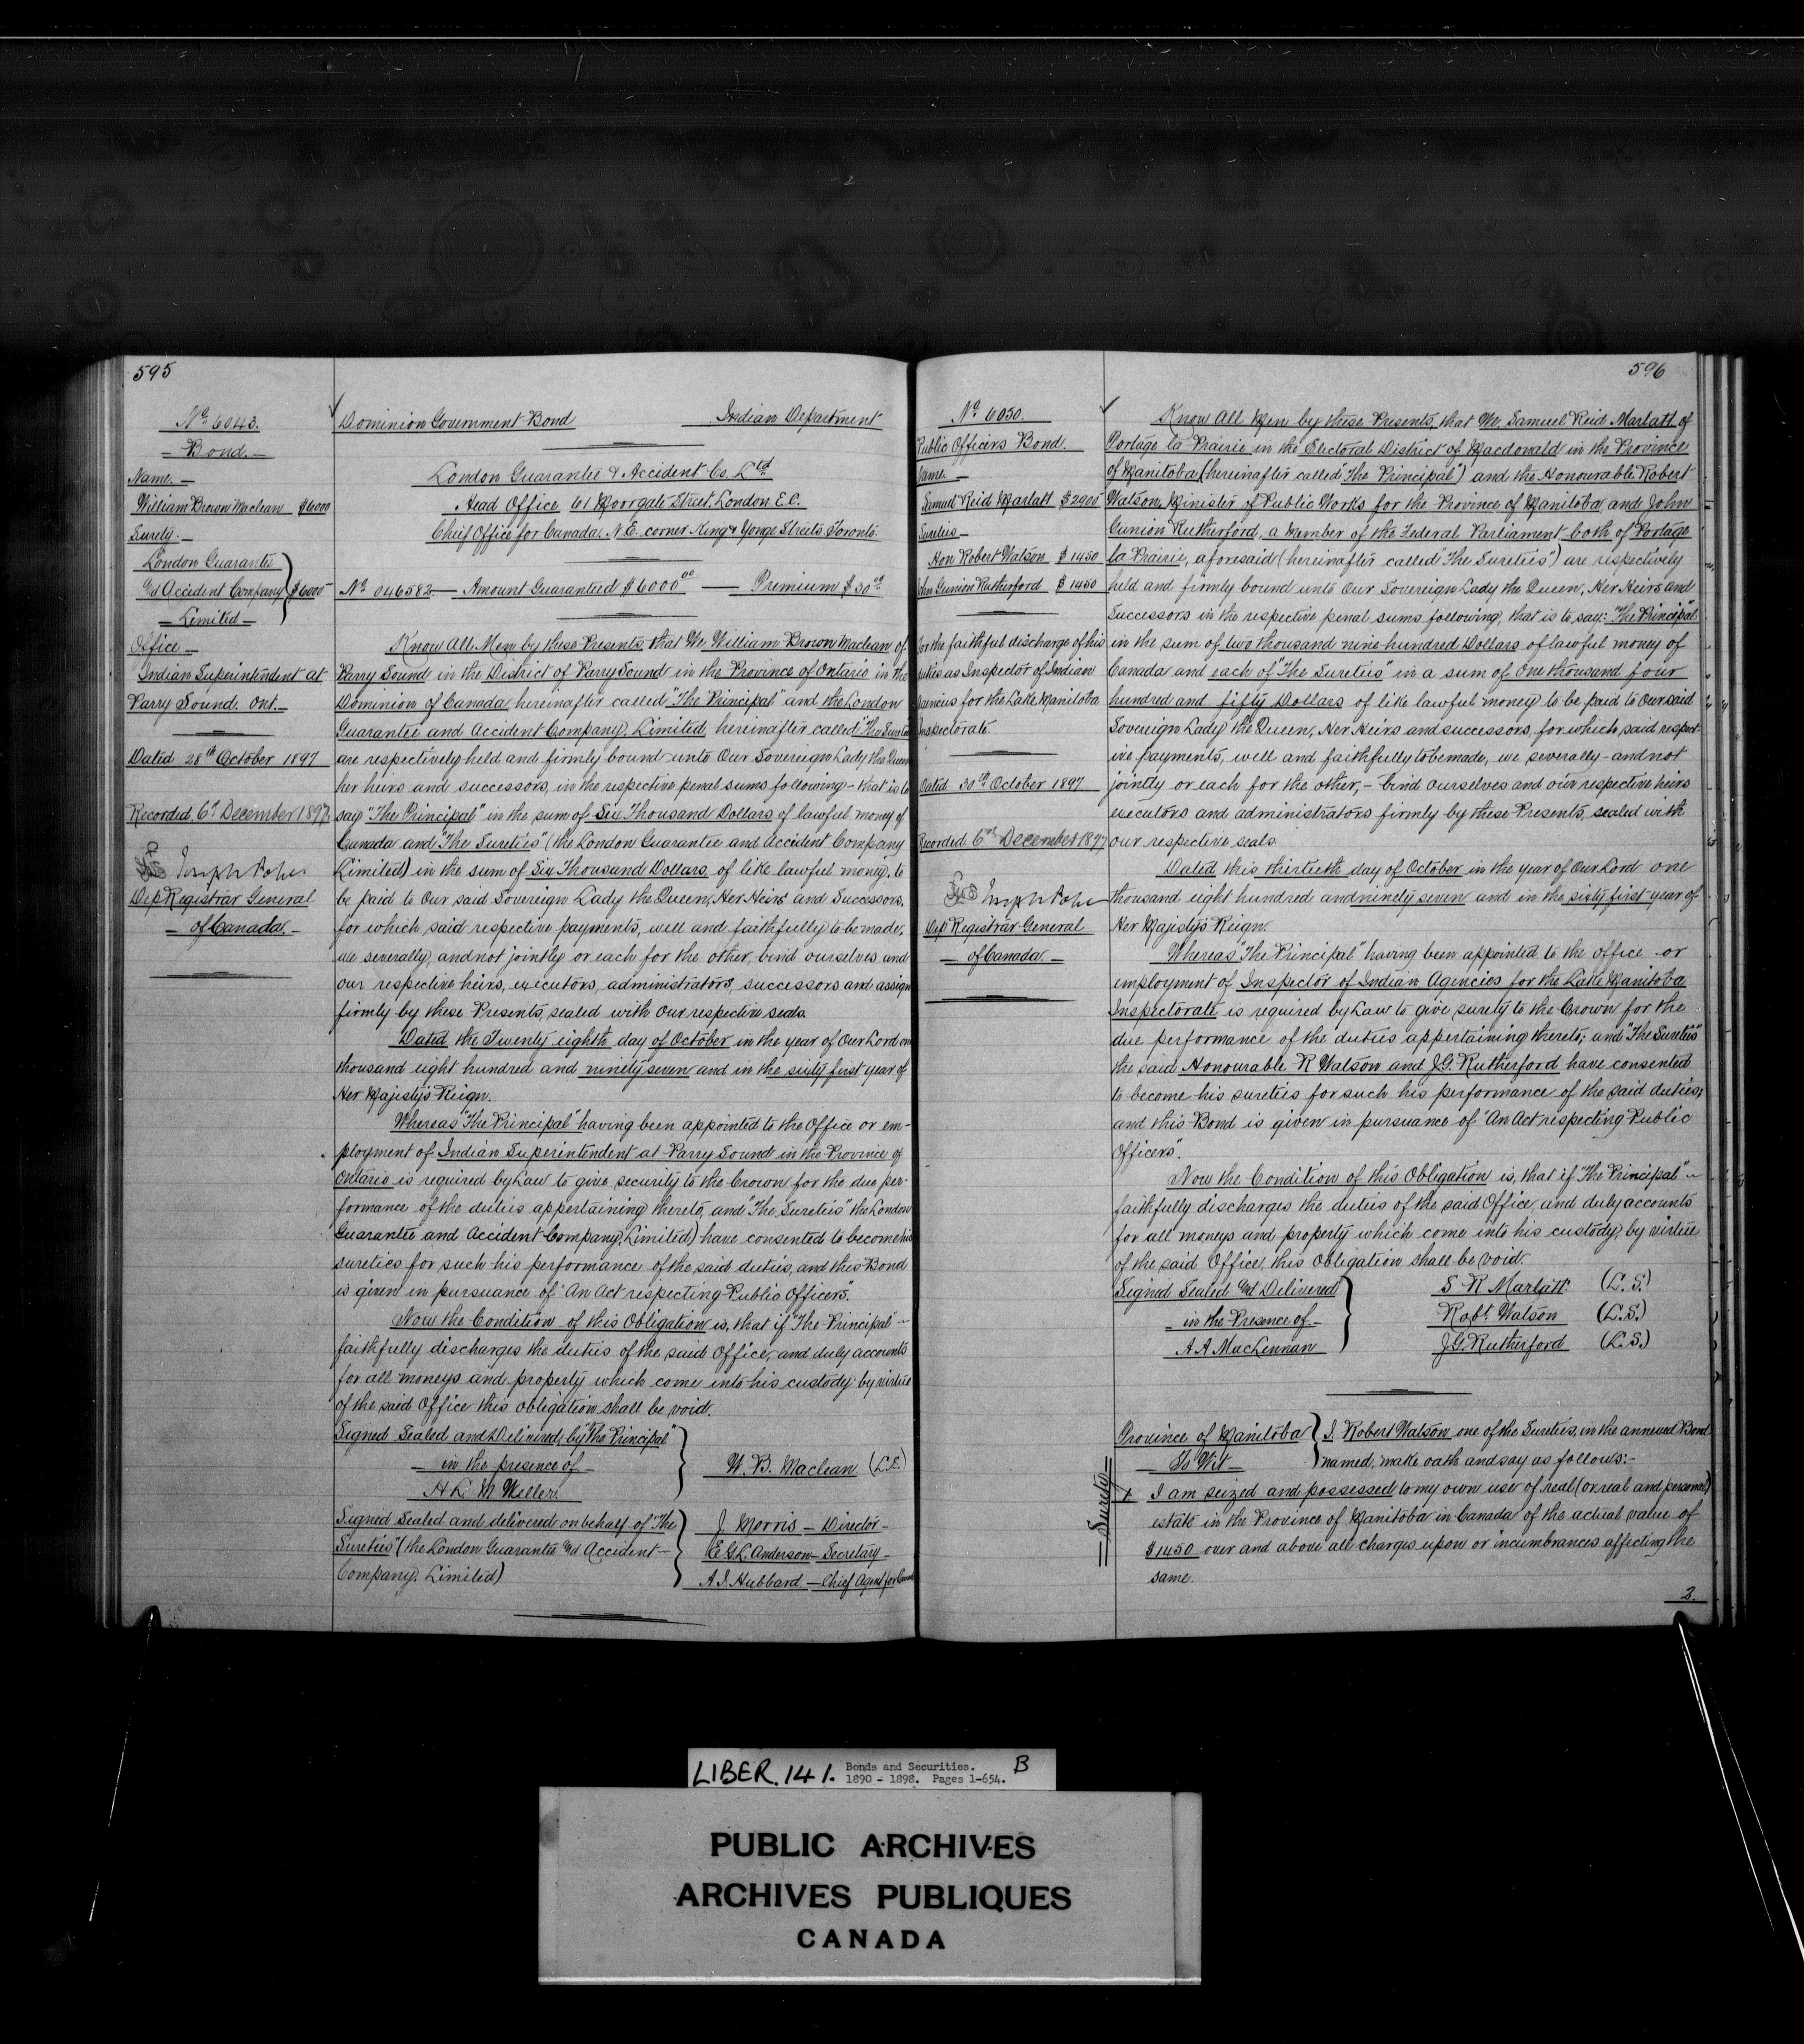 595
No 6043.
Bond.
Name.
William Brown Maclean $6000
Surety.
London Guarantee
and Accident Company $6000
Limited
Office
Indian Superintendent at
Parry Sound. Ont.
Dated 28th October 1897
Recorded. 6th December 1897
Joseph Pope
Dep Registrar General
of Canada.
Dominion Government Bond Indian Department
London Guarantee & Accident Co. Ltd
Head Office 61 Moorgate Street, London E.C.
Chief Office for Canada. N.E. corner King & Yonge Streets Toronto.
No 046582 — Amount Guaranteed $6000 00 — Premium $30 00
Know All Men by these Presents, that We, William Brown Maclean of
Parry Sound in the District of Parry Sound in the Province of Ontario in the
Dominion of Canada, hereinafter called "The Principal" and the London
Guarantee and Accident Company, Limited, hereinafter called "The Sureties"
are respectively held and firmly bound unto Our Sovereign Lady the Queen
her heirs and successors, in the respective penal sums following – that is to
say "The Principal" in the sum of Six Thousand Dollars of lawful money of
Canada and "The Sureties" (the London Guarantee and Accident Company
Limited) in the sum of Six Thousand Dollars of like lawful money, to
be paid to Our said Sovereign Lady the Queen, Her Heirs and Successors,
for which said respective payments, well and faithfully to be made,
we severally, and not jointly or each for the other, bind ourselves and
our respective heirs, executors, administrators, successors and assigns
firmly by these Presents, sealed with our respective seals.
Dated the Twenty eighth day of October in the year of Our Lord one
thousand eight hundred and ninety seven and in the sixty first year of
Her Majesty's Reign.
Whereas "The Principal" having been appointed to the Office or em-
ployment of Indian Superintendent at Parry Sound in the Province of
Ontario is required by Law to give security to the Crown for the due per-
formance of the duties appertaining thereto, and "The Sureties" the London
Guarantee and Accident Company, Limited) have consented to become his
sureties for such his performance of the said duties, and this Bond
is given in pursuance of "An Act respecting Public Officers."
Now the Condition of this Obligation is, that if "The Principal"
faithfully discharges the duties of the said Office, and duly accounts
for all moneys and property which come into his custody by virtue
of the said Office this obligation shall be void.
Signed Sealed and Delivered, by "The Principal"
in the presence of W. B. Maclean (L.S.)
Signed Sealed and delivered on behalf of "The J. Morris — Director
Sureties" (the London Guarantee and Accident E.G.L. Anderson — Secretary
Company, Limited) A.I. Hubbard — Chief Agent for Canada
596
No 6050.
Public Officers Bond.
Name.
Samuel Reid Marlatt $2900
Sureties
Hon Robert Watson $1450
John Gunion Rutherford $1450
For the faithful discharge of his
duties as Inspector of Indian
Agencies for the Lake Manitoba
Inspectorate.
Dated 30th October 1897
Recorded 6th December 1897
Joseph Pope
Dep Registrar General
of Canada
Know All Men by these Presents, that We, Samuel Reid Marlatt of
Portage la Prairie in the Electoral District of Macdonald in the Province
of Manitoba (hereinafter called "The Principal") and the Honourable Robert
Watson, Minister of Public Works for the Province of Manitoba, and John
Gunion Rutherford, a Member of the Federal Parliament both of Portage
la Prairie, aforesaid (hereinafter called "The Sureties") are respectively
held and firmly bound unto Our Sovereign Lady the Queen, Her Heirs and
Successors in the respective penal sums following, that is to say: "The Principal"
in the sum of two thousand nine hundred Dollars of lawful money of
Canada and each of "The Sureties" in a sum of One thousand four
hundred and fifty Dollars of like lawful money to be paid to Our said
Sovereign Lady the Queen, Her Heirs and successors, for which, said respect-
ive payments, well and faithfully to be made, we severally – and not
jointly or each for the other, – bind ourselves and our respective heirs
executors and administrators firmly by these Presents, sealed with
our respective seals.
Dated this thirtieth day of October in the year of Our Lord one
thousand eight hundred and ninety seven and in the sixty first year of
Her Majesty's Reign.
Whereas "The Principal" having been appointed to the office or
employment of Inspector of Indian Agencies for the Lake Manitoba
Inspectorate is required by Law to give surety to the Crown for the
due performance of the duties appertaining thereto; and "The Sureties"
the said Honourable R Watson and J.G. Rutherford have consented
to become his sureties for such his performance of the said duties;
and this Bond is given in pursuance of "An Act respecting Public
Officers".
Now the Condition of this Obligation is, that if "The Principal"
faithfully discharges the duties of the said Office, and duly accounts
for all moneys and property which come into his custody, by virtue
of the said Office, this Obligation shall be void.
Signed Sealed and Delivered S R Marlatt (L.S.)
in the Presence of Robt. Watson (L.S.)
A A MacLennan J.G. Rutherford (L.S.)
Province of Manitoba I, Robert Watson one of the Sureties, in the annexed Bond
To Wit named, make oath and say as follows:–
Surety
1 I am seized and possessed to my own use of real (or real and personal)
estate in the Province of Manitoba in Canada of the actual value of
$1450 over and above all charges upon or incumbrances affecting the
same.
2.
LIBER. 141. Bonds and Securities. B
1890 - 1898. Pages 1-654.
PUBLIC ARCHIVES
ARCHIVES PUBLIQUES
CANADA